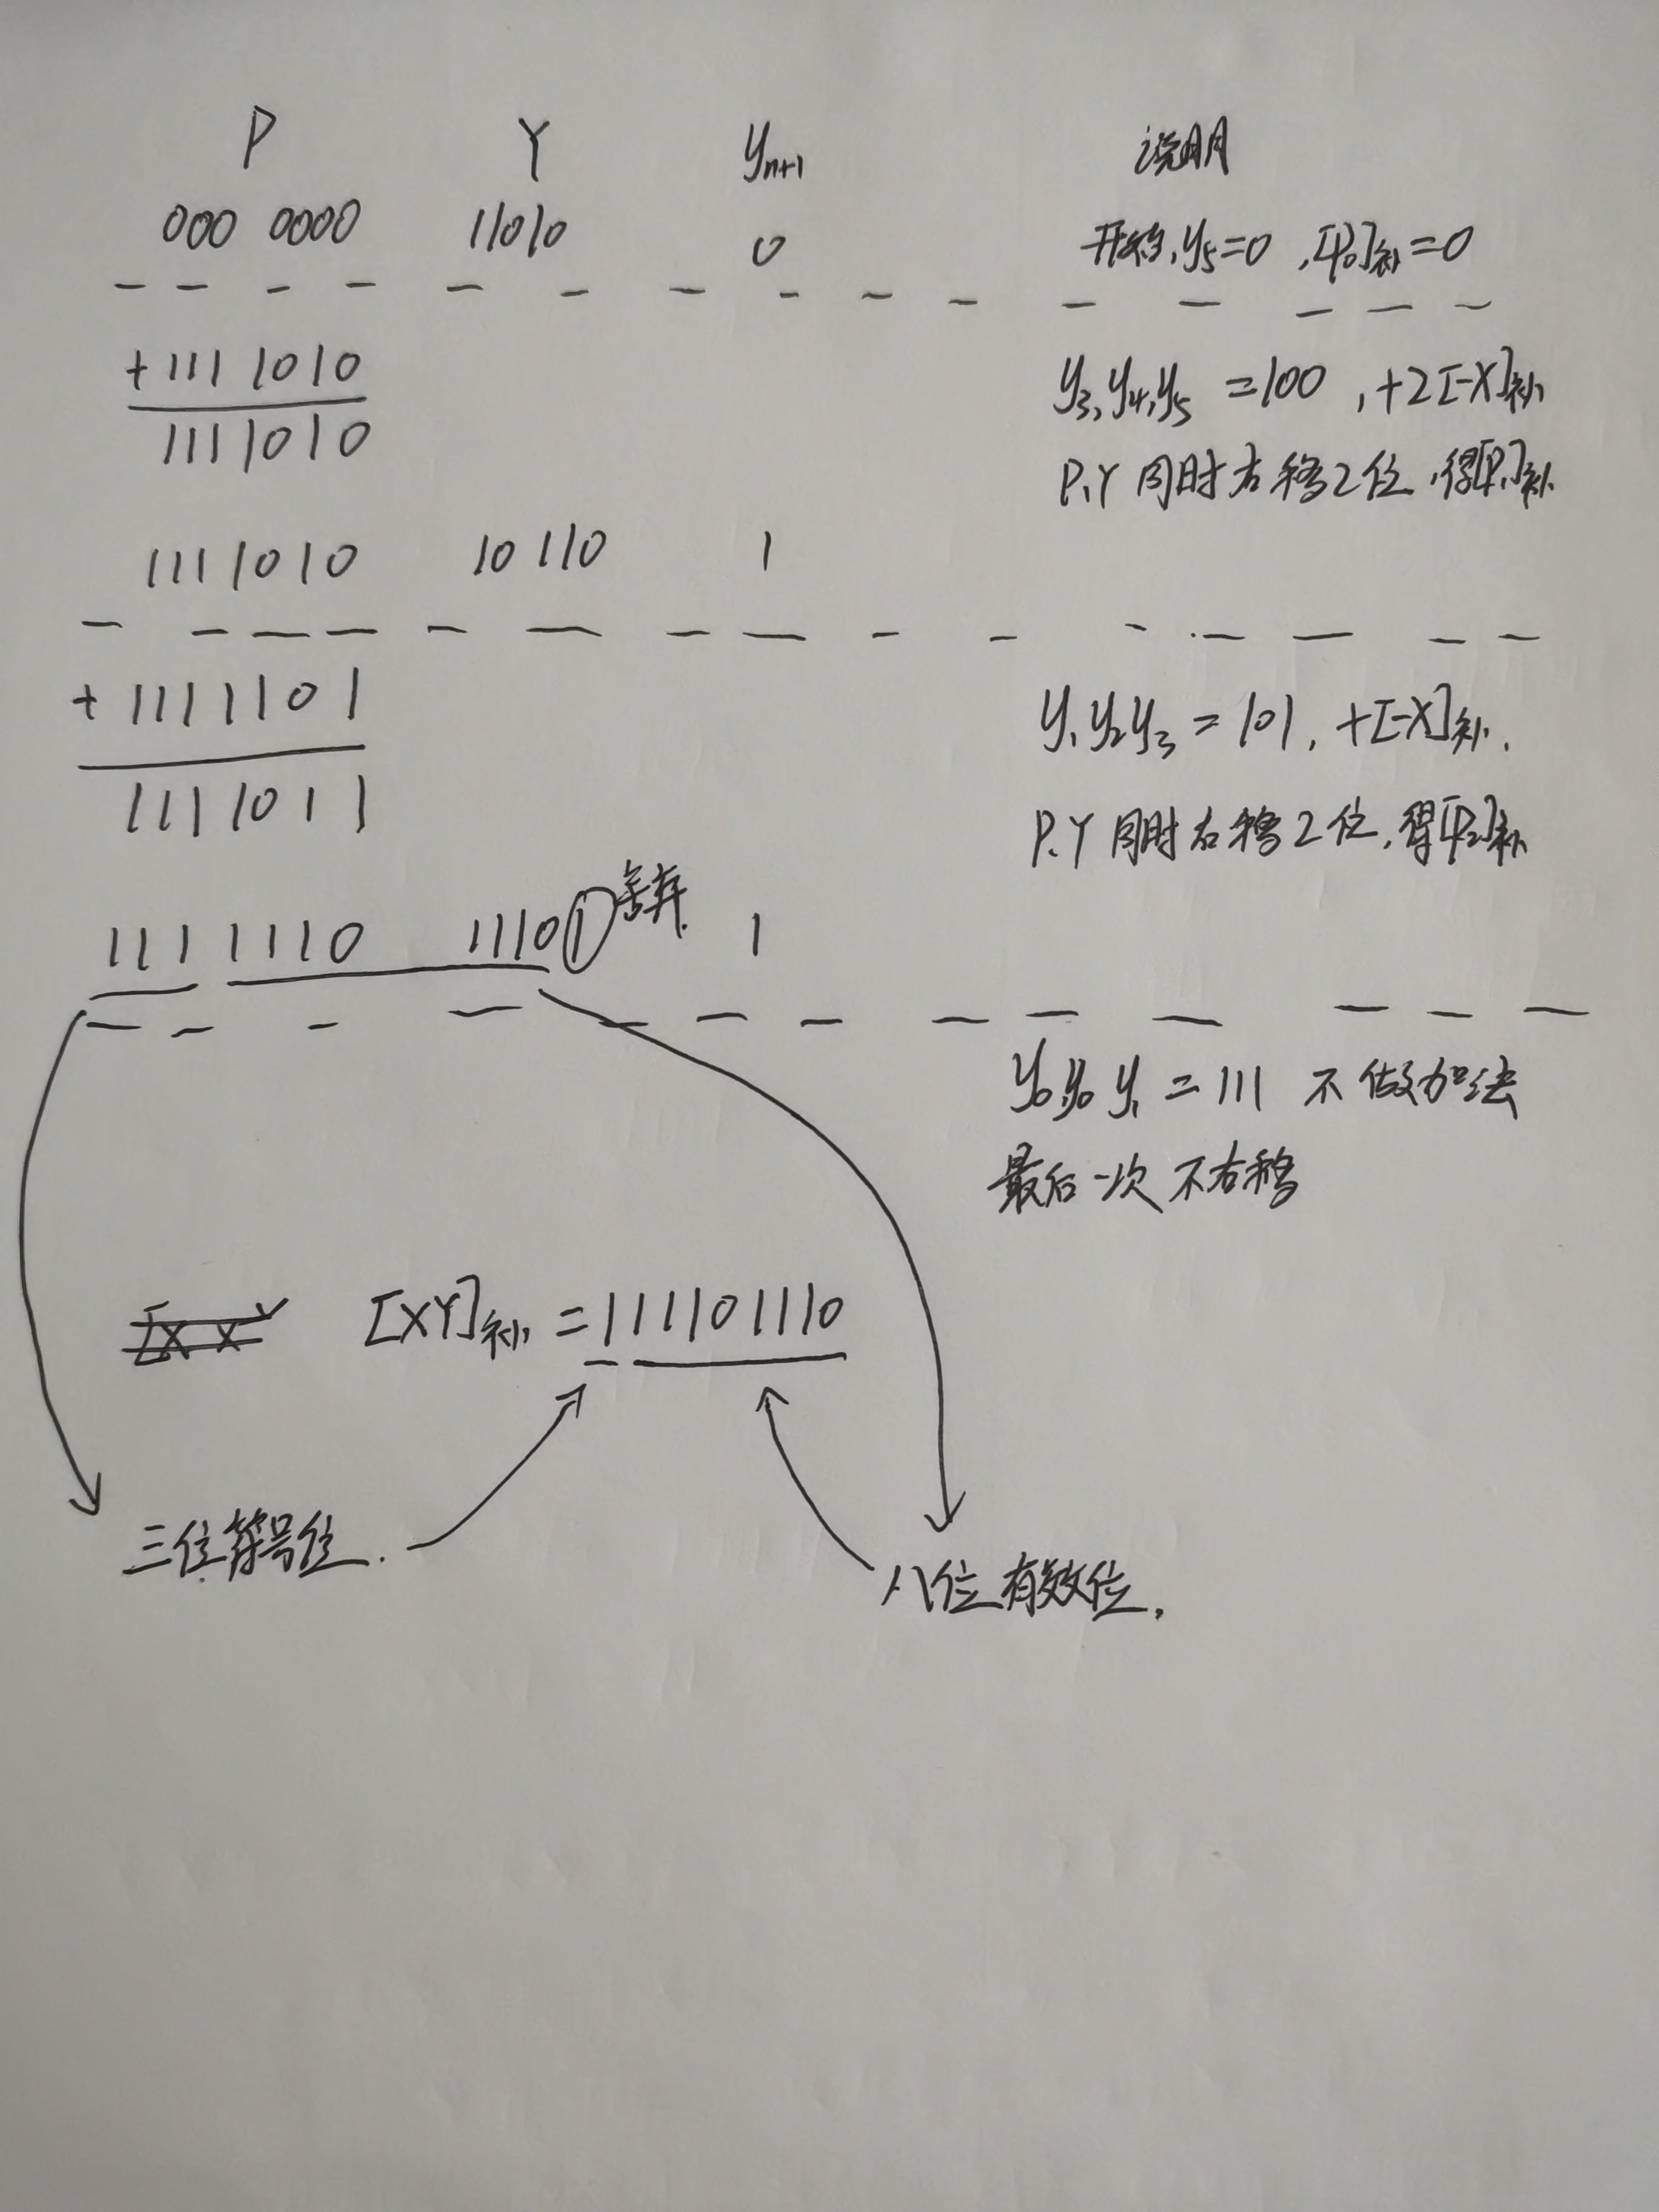 P Y yn+1 说明
000 0000 11010 0 开始,y5=0 ,[P0]补=0
+111 1010 y3,y4,y5 =100 ,+2[-X]补
1111010 P,Y 同时右移2位,得[P1]补
1111010 10110 1
+1111101 y1y2y3 = 101, +[-X]补.
1111011 P,Y 同时右移2位,得[P2]补
111 1110 11101 舍弃. 1
y0y0y1 = 111 不做加法
最后一次 不右移
[XY]补 = 111101110
三位符号位.
八位有效位.